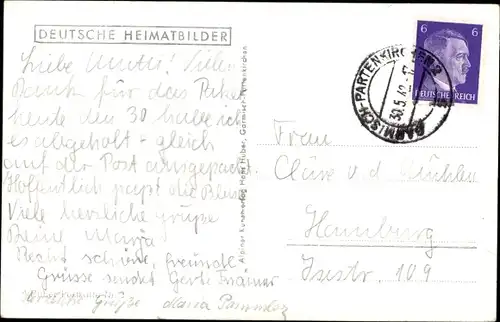 DEUTSCHE HEIMATBILDER
Liebe Mutti! Vielen
Dank für das Paket
heute den 30 habe ich
es abgeholt - gleich
auf der Post ausgepackt.
Hoffentlich paßt die Bluse
Viele herzliche Grüße
Deine
Recht schöne, freundl.
Grüsse sendet
Grüße Maria
Alpiner Kunstverlag Hans Huber, Garmisch-Partenkirchen
GARMISCH-PARTENKIRCHEN 2
30.5.42
6 6
DEUTSCHES REICH
Frau
v. d. Mühlen
Hamburg
Isestr. 109